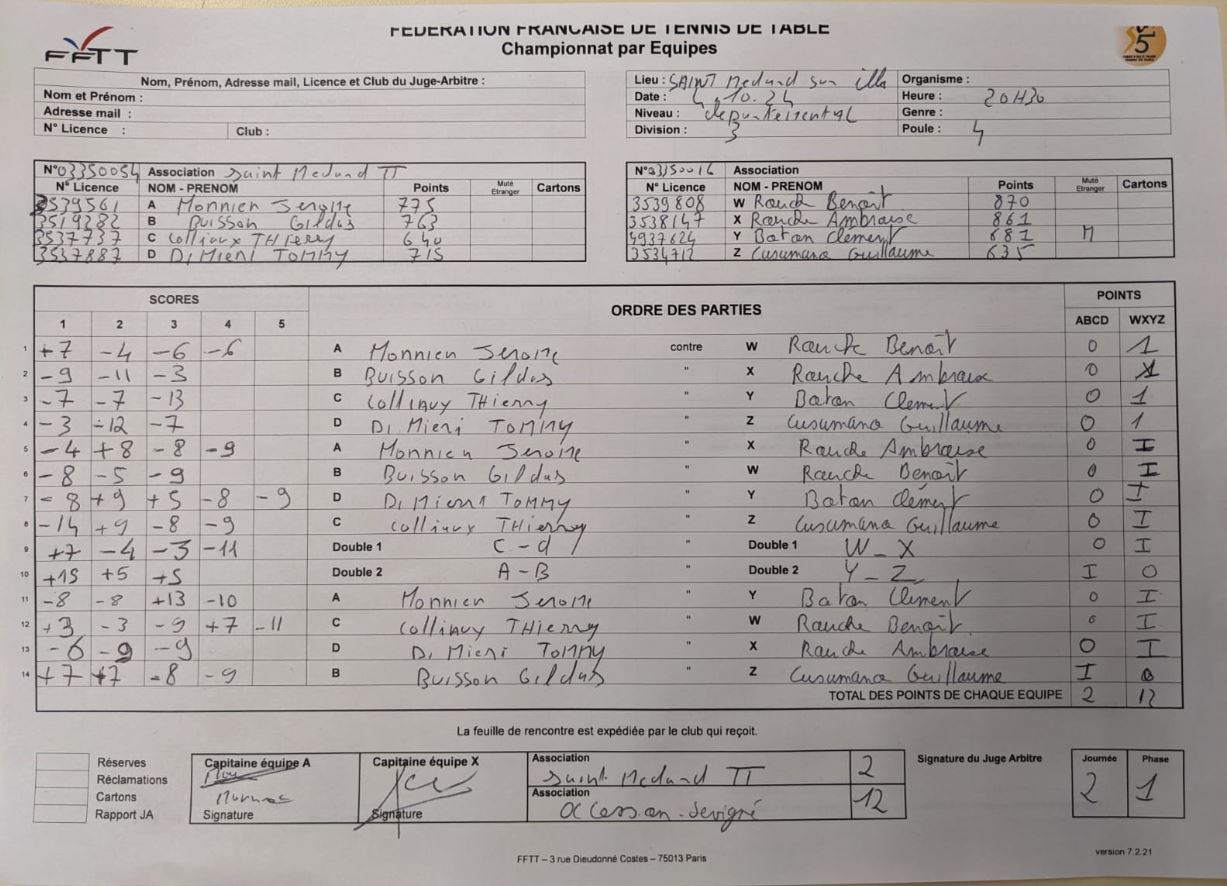 FEDERATION FRANCAISE DE TENNIS DE TABLE
Championnat par Equipes
FFTT
Nom, Prénom, Adresse mail, Licence et Club du Juge-Arbitre :
Nom et Prénom :
Adresse mail :
N° Licence : Club :
Lieu : SAINT Medard sur ille Organisme :
Date : 4.10.24 Heure : 20H30
Niveau : departemental Genre :
Division : 3 Poule : 4
N°03350054 Association Saint Medard TT
N° Licence NOM - PRENOM Points Muté Etranger Cartons
3539561 A Monnien Jerome 775
3519282 B Buisson Gildas 763
3537737 C Collioux THierry 640
3537887 D Di Mieni TOMMY 715
N°03350016 Association
N° Licence NOM - PRENOM Points Muté Etranger Cartons
3539808 W Rauche Benoit 870
3538147 X Rauche Ambroise 861
4937624 Y Baton Clement 681 M
3534712 Z Cusumano Guillaume 635
SCORES ORDRE DES PARTIES POINTS
1 2 3 4 5 ABCD WXYZ
1 +7 -4 -6 -6 A Monnien Jerome contre W Rauche Benoit 0 1
2 -9 -11 -3 B Buisson Gildas " X Rauche Ambroise 0 1
3 -7 -7 -13 C Collioux THierry " Y Baton Clement 0 1
4 -3 -12 -7 D Di Mieni TOMMY " Z Cusumano Guillaume 0 1
5 -4 +8 -8 -9 A Monnien Jerome " X Rauche Ambroise 0 I
6 -8 -5 -9 B Buisson Gildas " W Rauche Benoit 0 I
7 -8 +9 +5 -8 -9 D Di Mieni TOMMY " Y Baton Clément 0 I
8 -14 +9 -8 -9 C Collioux THierry " Z Cusumano Guillaume 0 I
9 +7 -4 -3 -11 Double 1 C-d " Double 1 W-X 0 I
10 +15 +5 +5 Double 2 A-B " Double 2 Y-Z I 0
11 -8 -8 +13 -10 A Monnien Jerome " Y Baton Clement 0 I
12 +3 -3 -9 +7 -11 C Collioux THierry " W Rauche Benoit 0 I
13 -6 -9 -9 D Di Mieni TOMMY " X Rauche Ambroise 0 I
14 +7 +7 -8 -9 B Buisson Gildas " Z Cusumano Guillaume I 0
TOTAL DES POINTS DE CHAQUE EQUIPE 2 12
La feuille de rencontre est expédiée par le club qui reçoit.
Réserves
Réclamations
Cartons
Rapport JA
Capitaine équipe A
Signature
Capitaine équipe X
Signature
Association
Saint Medard TT 2
Association
OC Cesson-Sevigné 12
Signature du Juge Arbitre
Journée Phase
2 1
FFTT – 3 rue Dieudonné Costes – 75013 Paris
version 7.2.21